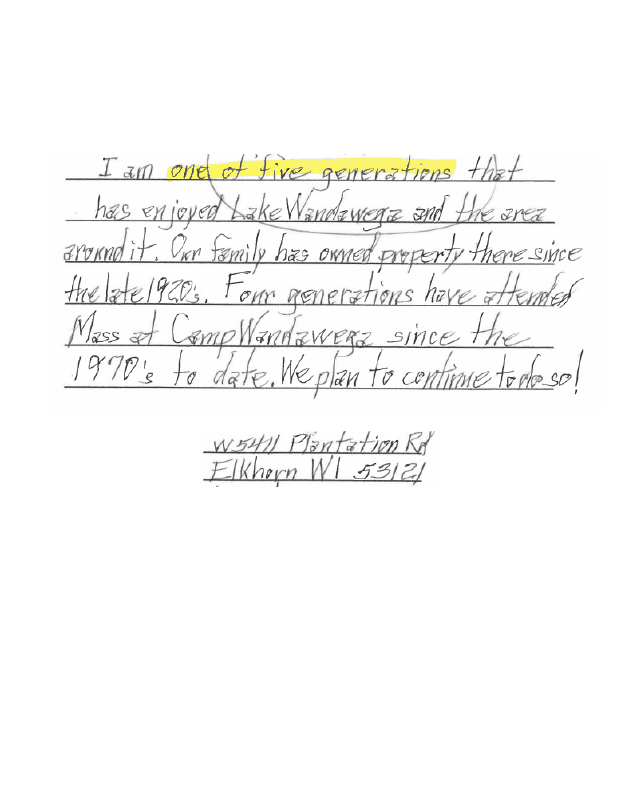 I am one of five generations that
has enjoyed Lake Wandawega and the area
around it. Our family has owned property there since
the late 1920's. Four generations have attended
Mass at Camp Wandawega since the
1970's to date. We plan to continue to do so!
W5411 Plantation Rd
Elkhorn WI 53121